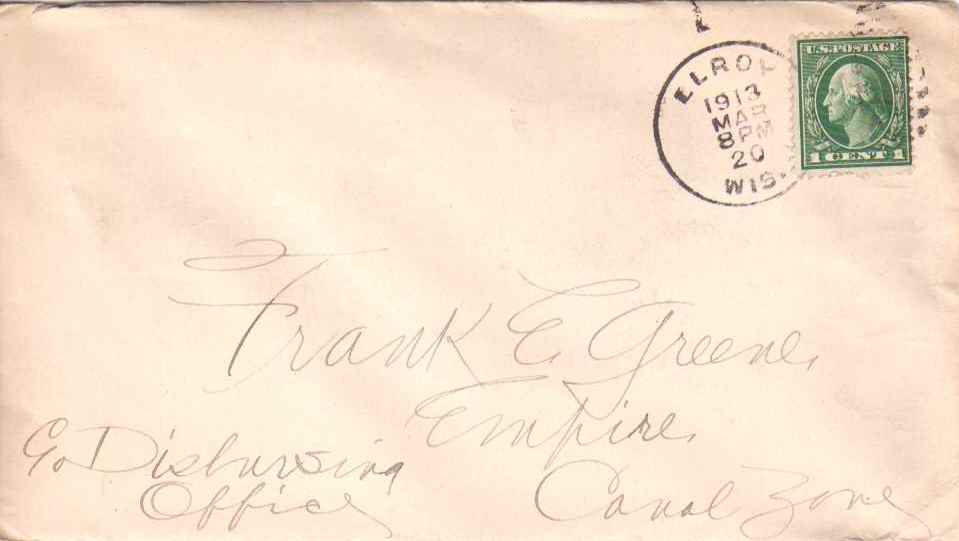 ELROY
1913
MAR
8 PM
20
WIS.
U.S. POSTAGE
1 CENT 1
Frank E. Greene,
Empire,
Canal Zone
c/o Disbursing
Office